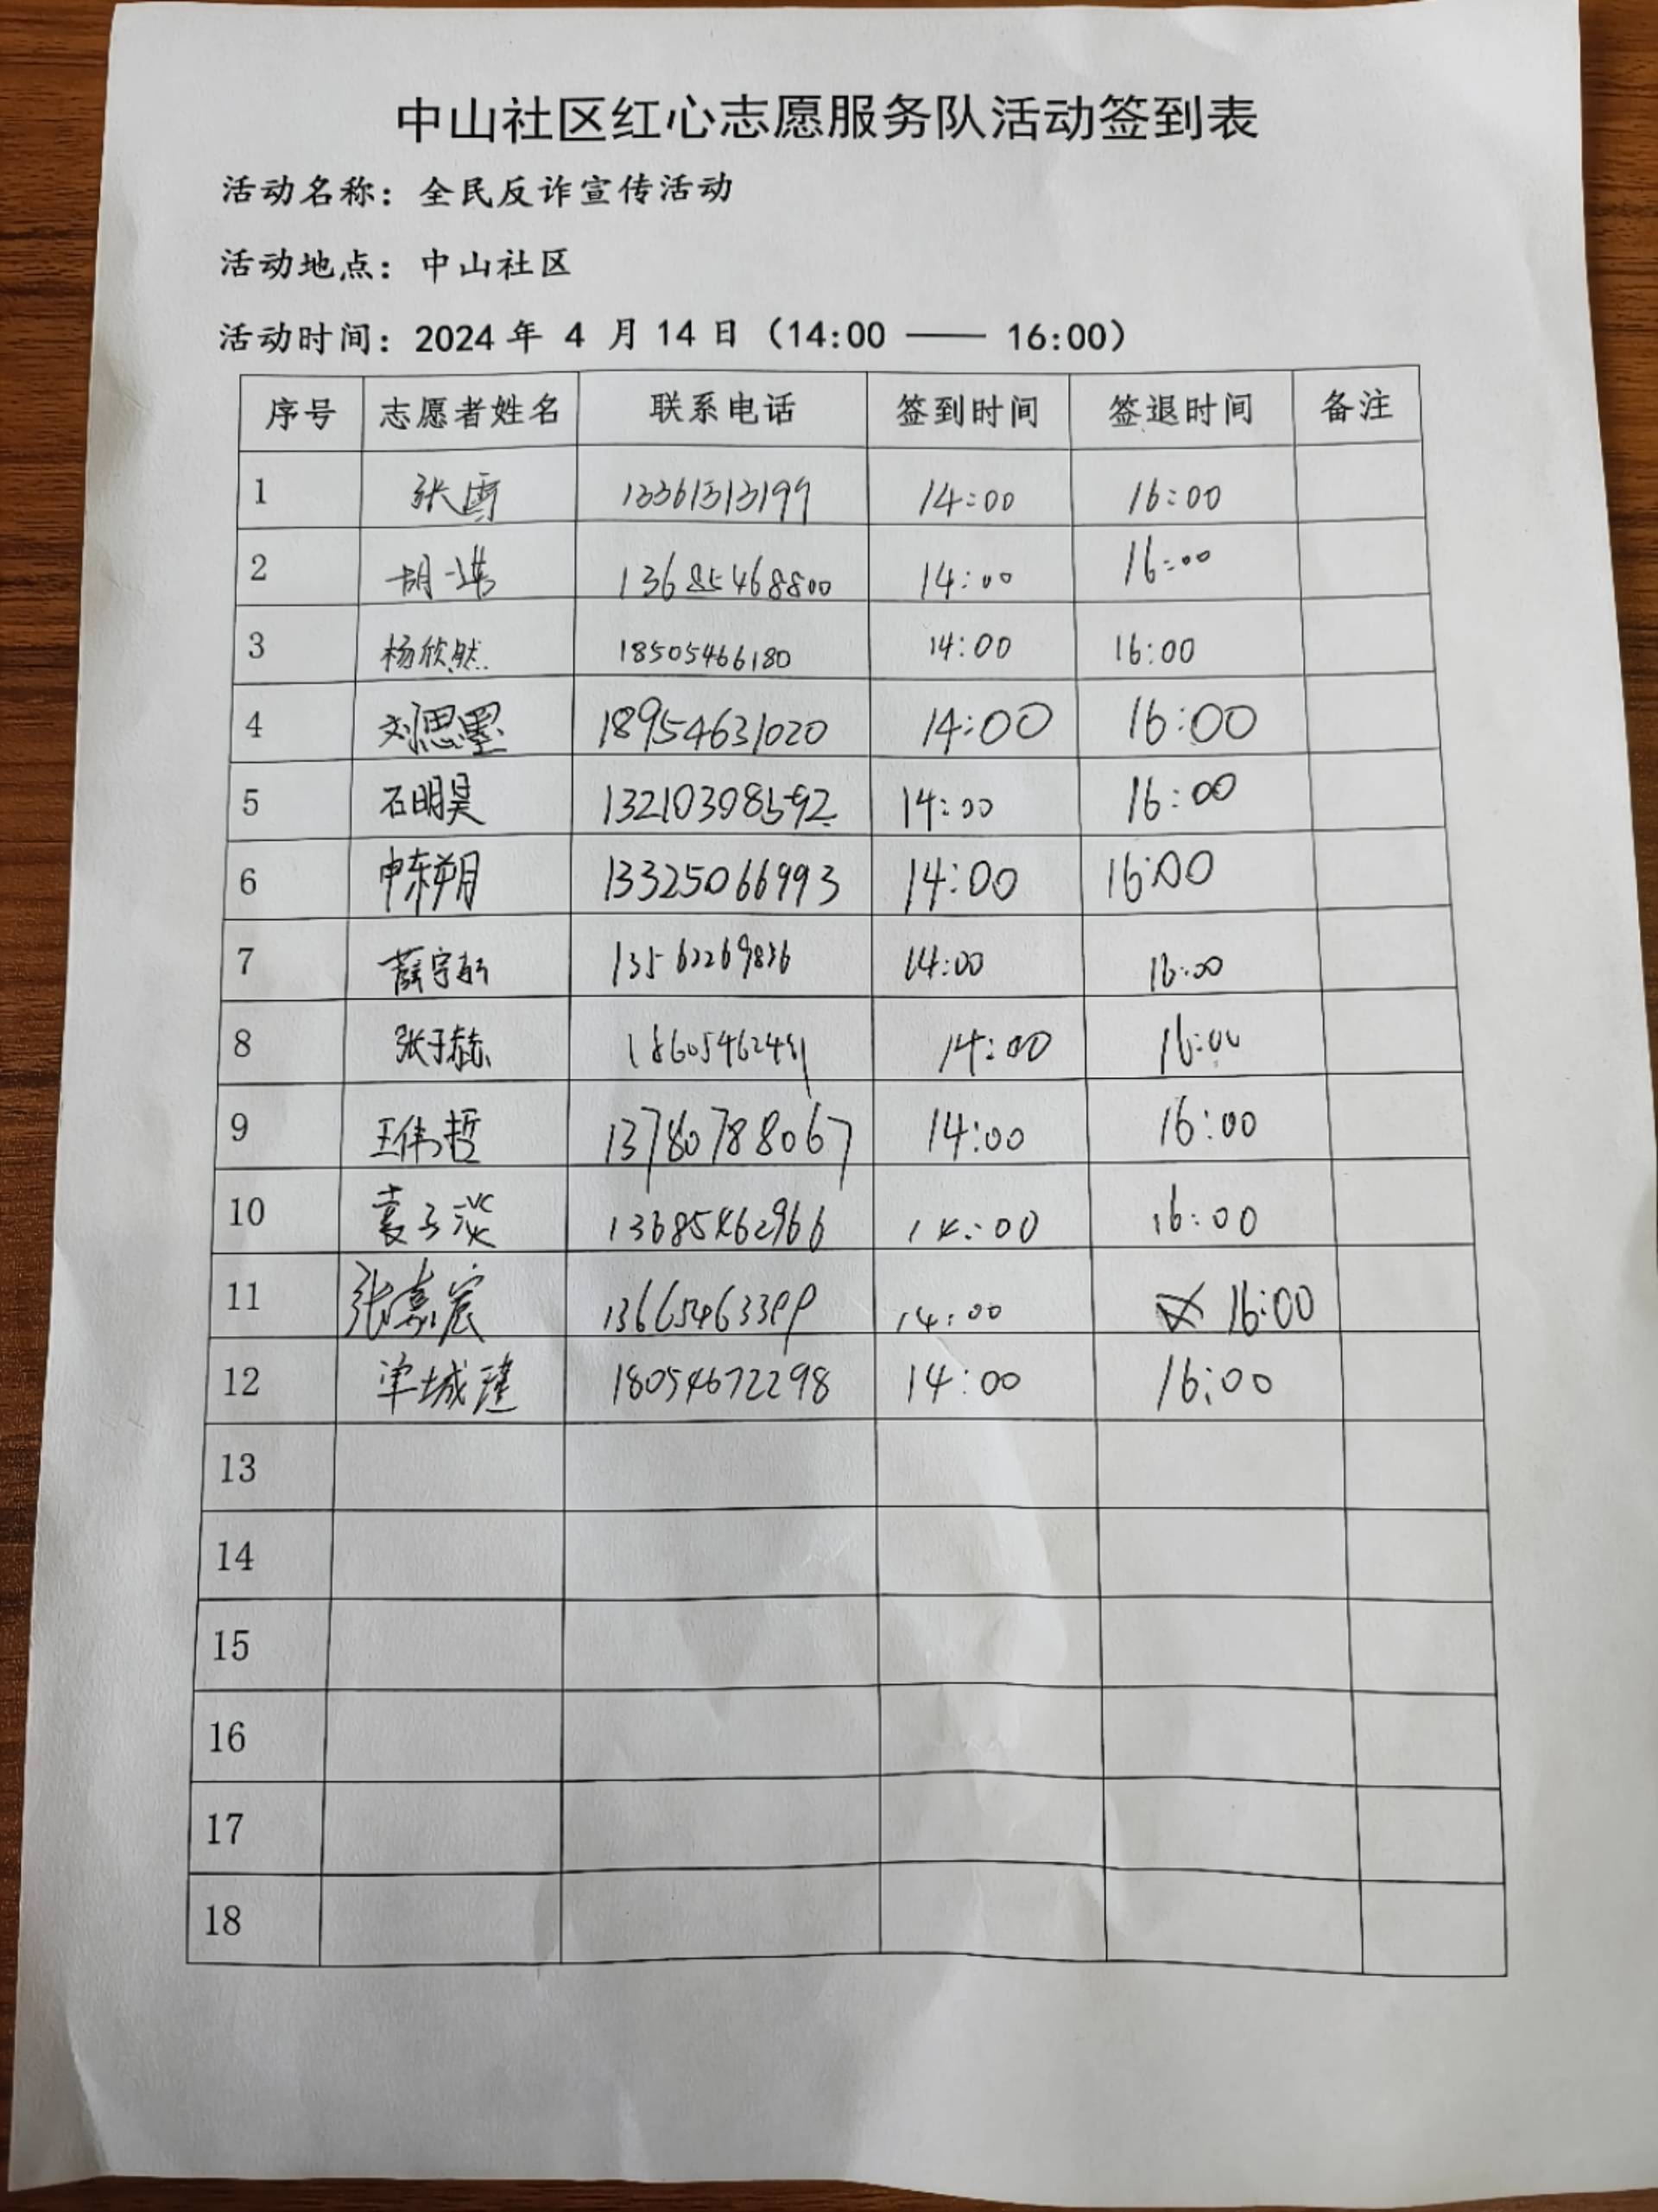 中山社区红心志愿服务队活动签到表
活动名称：全民反诈宣传活动
活动地点：中山社区
活动时间：2024 年 4 月 14 日（14:00 —— 16:00）
序号 志愿者姓名 联系电话 签到时间 签退时间 备注
1 张雪 14:00 16:00
2 胡 13685468800 14:00 16:00
3 杨欣然 18505466180 14:00 16:00
4 刘思墨 18954631020 14:00 16:00
5 石明昊 14:00 16:00
6 申东朔 13325066993 14:00 16:00
7 薛宇 14:00 16:00
8 张于赫 14:00 16:00
9 王伟哲 13780788067 14:00 16:00
10 袁子淡 13685462966 14:00 16:00
11 张嘉宸 13665463399 14:00 16:00
12 单城建 18054672298 14:00 16:00
13
14
15
16
17
18